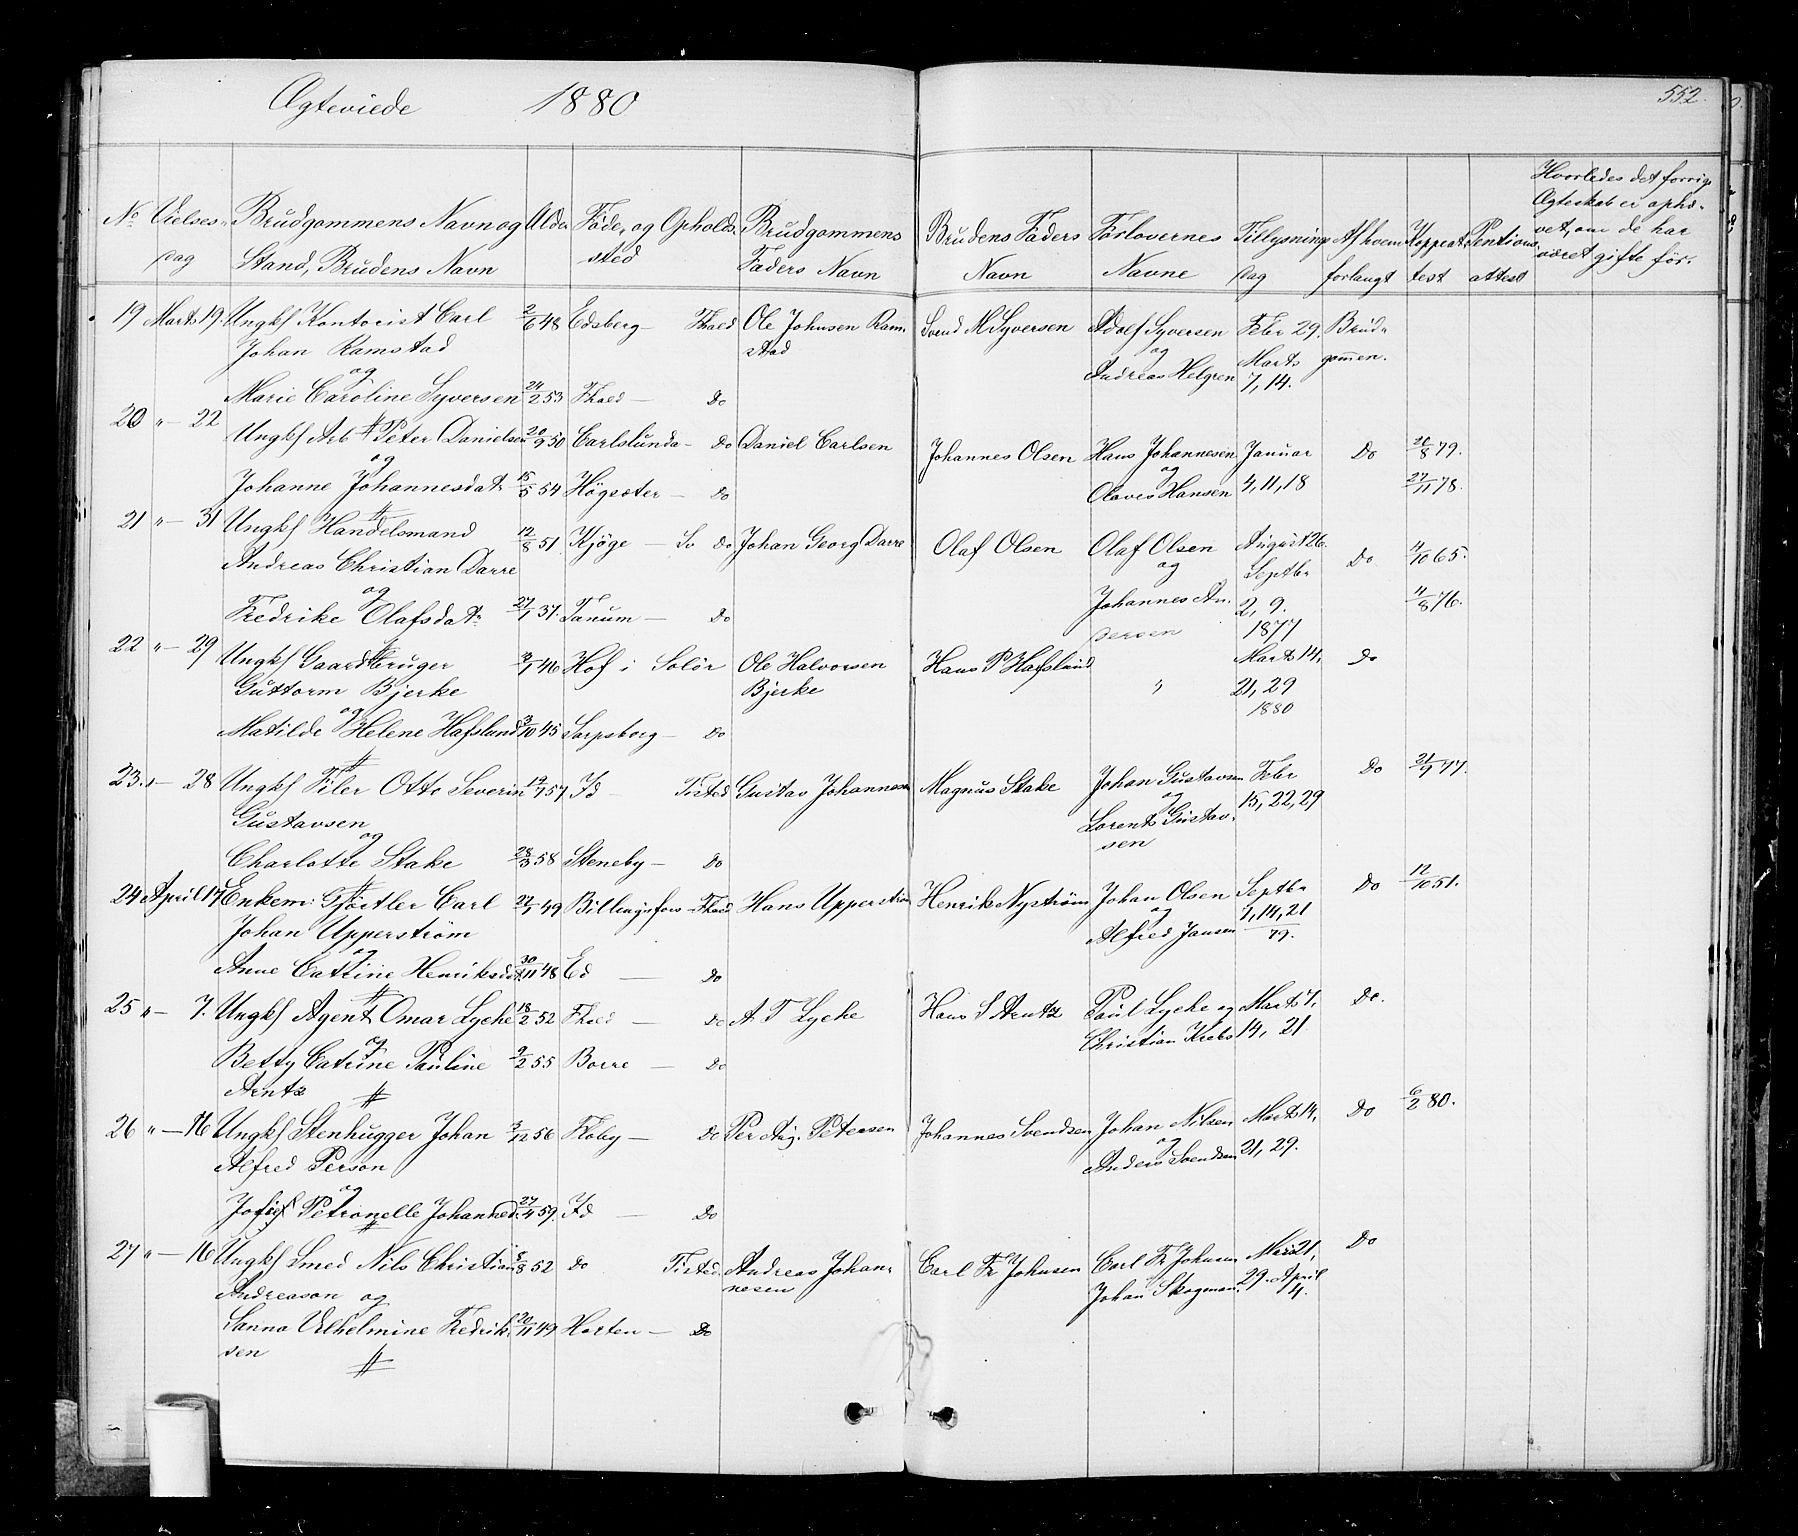 Ægteviede 1880
552.
No Vielses- Brudgommens Navn og Alder Føde, og Opholds- Brudgommens Brudens Faders Forlovernes Tillysnings Af hvem Koppeat- Pentions
dag Stand, Brudens Navn sted Faders Navn Navn Navne dag forlangt test attest
Hvorledes det forrige
Ægteskab er ophæ-
vet, om de har
været gifte før.
19 Marts 19. Ungkf Kontorist Carl 2/6 48 Edsberg — Fhald Ole Johnsen Ram- Svend M Syversen Adolf Syversen Febr 29. Brud-
Johan Ramstad stad og Marts gommen.
og Andreas Helgren 7, 14.
Marie Caroline Syversen 24/2 53 Fhald — Do
20 " — 22 Ungkf Arb Peter Danielsen 20/9 50 Carlslunda — Do Daniel Carlsen Johannes Olsen Hans Johannesen Januar Do 20/8 79.
og og
Johanne Johannesdatr 15/5 54 Högsæter — Do Olaves Hansen 4, 11, 18 27/11 78.
21 " — 31 Ungkf Handelsmand 12/8 51 Kjöge — Sv Do Johan Georg Darre Olaf Olsen Olaf Olsen August 26. Do 11/10 65.
Andreas Christian Darre og Septbr
og Johannes An- 2, 9.
Fredrike Olafsdatr 27/1 37. Tanum — Do dersen 1877 11/8 76.
22 " — 29 Ungkf Gaardbruger 3/1 46 Hof i Solör Ole Halvorsen Hans P Hafslund " Marts 14, Do
Guttorm Bjerke Bjerke 21, 29
og 1880
Matilde Helene Hafslund 3/10 45 Sarpsborg — Do
23. " — 28 Ungkf Filer Otto Severin 19/7 57 Id — Tisted Gustav Johannesen Magnus Stake Johan Gustavsen Febr Do 21/9 77.
Gustavsen og 15, 22, 29
og Lorents Gustav-
sen
Charlotte Stake 28/3 58 Steneby — Do
24 April 17 Enkem: Gjörtler Carl 27/1 49 Billingsfors — Fhald Hans Upperström Henrik Nyström Johan Olsen Septbr Do 12/10 51.
Johan Upperström og 7, 14, 21
og Alfred Jansen 79.
Anne Catrine Henriksd. 30/11 48 Ed — Do
25 " — 7. Ungkf Agent Omar Lyche 18/2 52 Fhald — Do A. T Lyche Hans S Arntz Paul Lyche og Marts 7, Do.
og Christian Krebs 14, 21
Betty Catrine Pauline 9/2 55 Borre — Do
Arntz
26 " — 16 Ungkf Stenhugger Johan 3/12 56 Floby — Do Per Aug. Petersen Johannes Svendsen Johan Nilsen Marts 14, Do 6/2 80.
Alfred Person og
og Anders Svendsen 21, 29.
Petronelle Johannesd. 27/4 59. Id — Do
27 " — 16 Ungkf Smed Nils Christian 8/8 52 do Tisted. Andreas Johan- Carl Fr Johnsen Carl Fr Johnsen Mars 21, Do
Andreason og nesen Johan Skogman. 29. April
4.
Sanna Vilhelmine Fredrik- 20/11 49 Horten — Do
sen